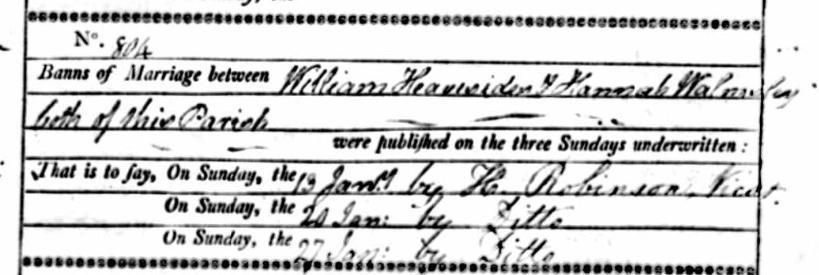 No. 804
Banns of Marriage between William Heavisides & Hannah Walmsley
both of this Parish
were published on the three Sundays underwritten:
That is to say, On Sunday, the 13 Jany by H. Robinson Vicar
On Sunday, the 20 Jan: by Ditto
On Sunday, the 27 Jan: by Ditto